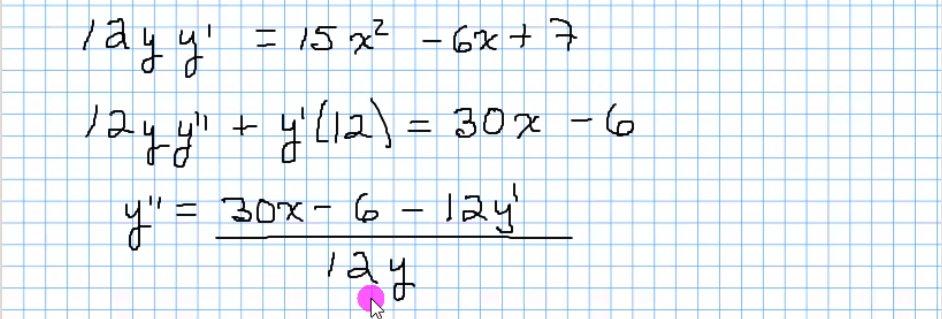 12y y' = 15x² - 6x + 7
12y y'' + y'(12) = 30x - 6
y'' = 30x - 6 - 12y'
12y